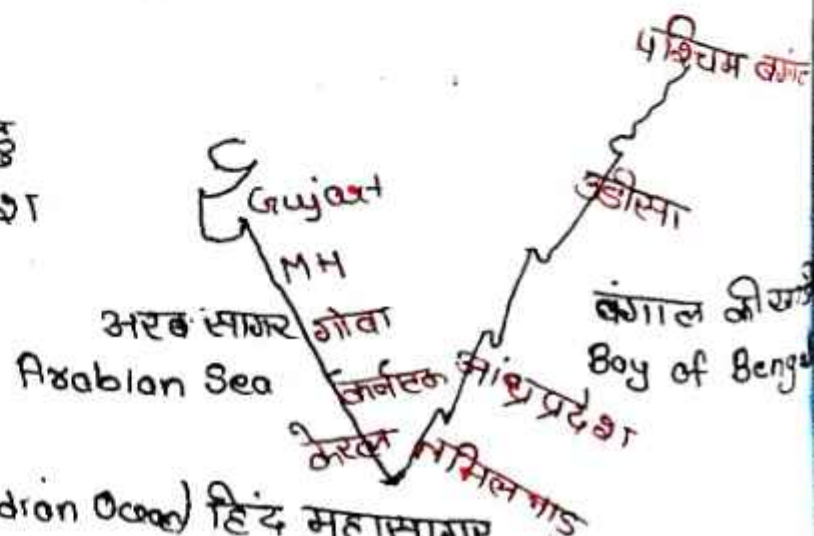 पश्चिम बंगा
Gujart
उडीसा
MH
अरब सागर
गोवा
बंगाल की
Arabian Sea
कर्नाटक
आंध्र प्रदेश
Bay of Benga
केरल
तमिल नाड
dian Ocean) हिंद महासागर